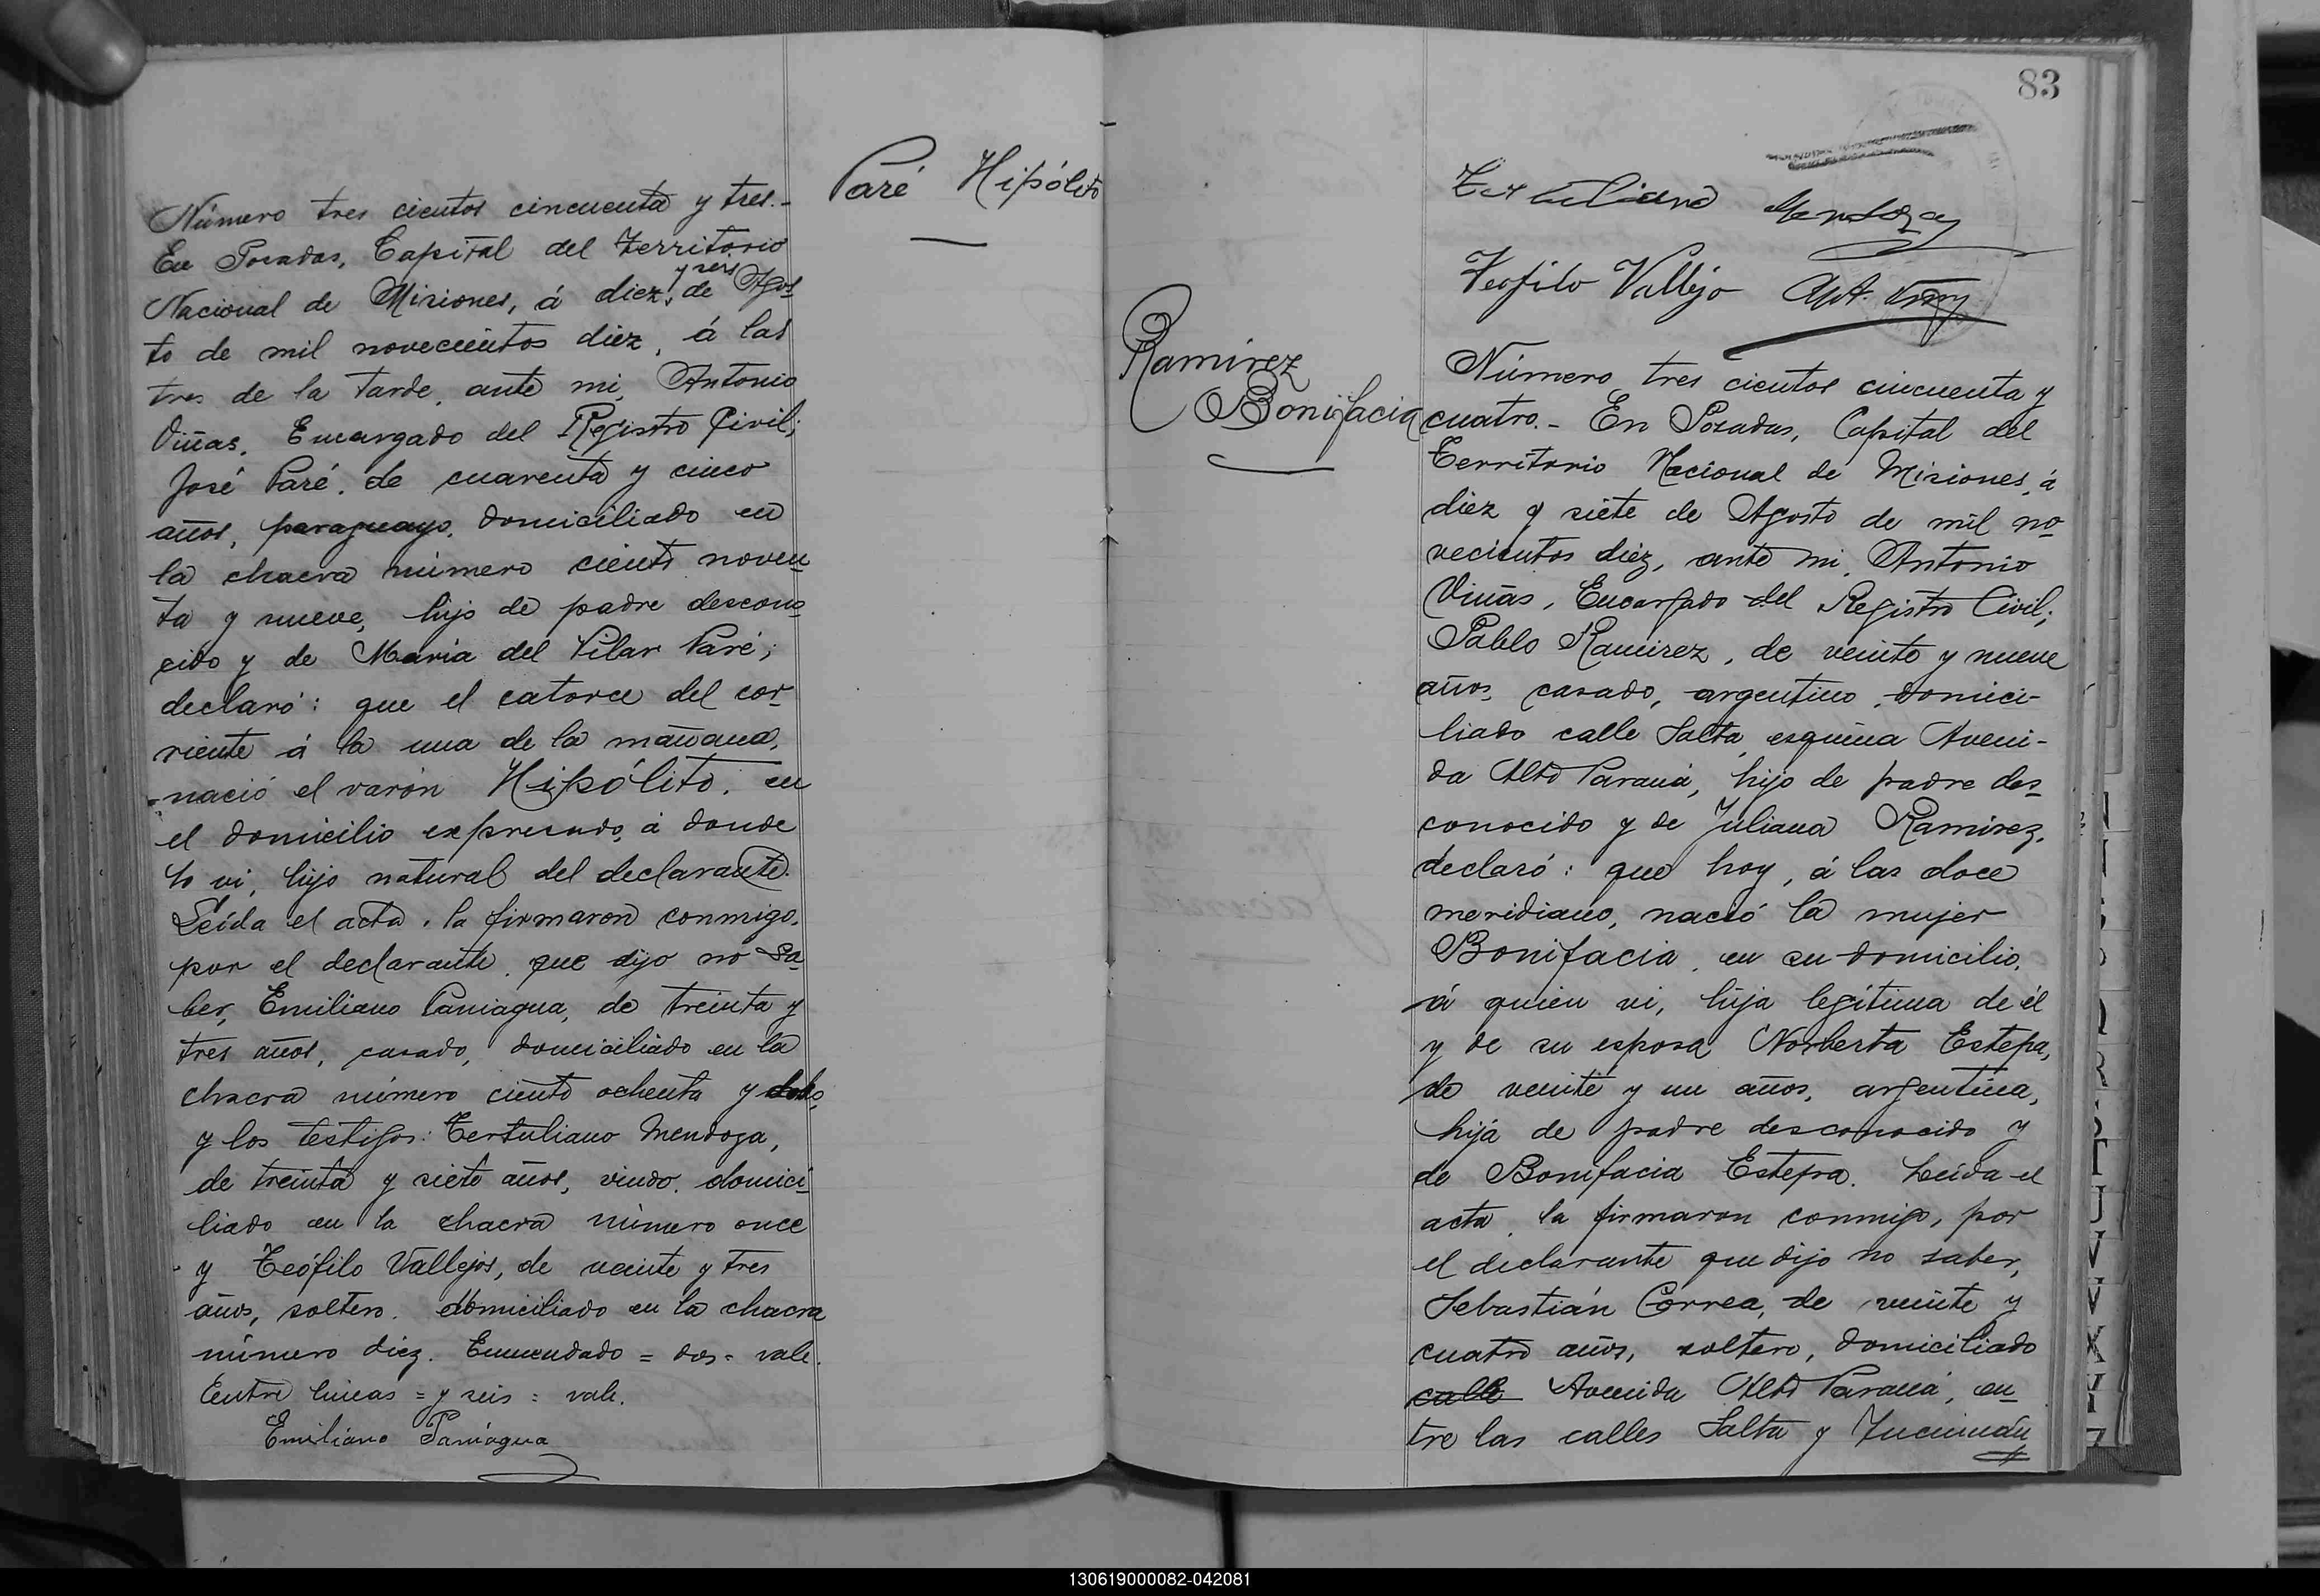 Paré Hipólito
Número tres cientos cincuenta y tres.-
En Posadas, Capital del Territorio
Nacional de Misiones, á diez y seis de Agos-
to de mil novecientos diez, á las
tres de la tarde, ante mi, Antonio
Viñas, Encargado del Registro Civil;
José Paré, de cuarenta y cinco
años, paraguayo, domiciliado en
la chacra número ciento noven-
ta y nueve, hijo de padre descono-
cido y de Maria del Pilar Paré;
declaró: que el catorce del cor-
riente á la una de la mañana,
nació el varón Hipólito, en
el domicilio expresado, á donde
lo vi, hijo natural del declarante.
Leída el acta, la firmaron conmigo,
por el declarante, que dijo no sa-
ber, Emiliano Paniagua, de treinta y
tres años, casado, domiciliado en la
chacra número ciento ochenta y dos
y los testigos: Tertuliano Mendoza,
de treinta y siete años, viudo, domici-
liado en la chacra número once
y Teófilo Vallejos, de veinte y tres
años, soltero, domiciliado en la chacra
número diez. Enmendado = dos = vale.
Entre lineas = y seis = vale.
Emiliano Paniagua
83
Tertuliano Mendoza
Teofilo Vallejo
Ramirez
Bonifacia
Número tres cientos cincuenta y
cuatro.- En Posadas, Capital del
Territorio Nacional de Misiones, á
diez y siete de Agosto de mil no-
vecientos diez, ante mi, Antonio
Viñas, Encargado del Registro Civil;
Pablo Ramirez, de veinte y nueve
años, casado, argentino, domici-
liado calle Salta, esquina Aveni-
da Alto Paraná, hijo de padre des-
conocido y de Juliana Ramirez,
declaró: que hoy, á las doce
meridiano, nació la mujer
Bonifacia, en su domicilio,
á quien vi, hija legítima de él
y de su esposa Norberta Estepa,
de veinte y un años, argentina,
hija de padre desconocido y
de Bonifacia Estepa. Leída el
acta, la firmaron conmigo, por
el declarante que dijo no saber,
Sebastián Correa, de veinte y
cuatro años, soltero, domiciliado
calle Avenida Alto Paraná, en-
tre las calles Salta y Tucumán
130619000082-042081